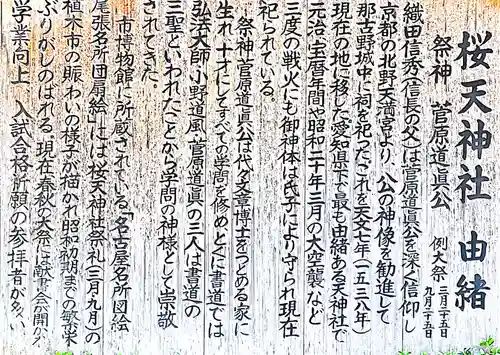 桜天神社 由緒
祭神 菅原道真公 例大祭 三月二十五日 九月二十五日
織田信秀(信長の父)は菅原道真公を深く信仰し
京都の北野天満宮より、公の神像を勧進して
那古野城中に祠を祀った。これを天文七年(一五三八年)
現在の地に移した愛知県下で最も由緒ある天神社で
元治、宝暦年間や昭和二十年三月の大空襲など
三度の戦火にも御神体は氏子により守られ現在
に祀られている。
祭神菅原道真公は代々文章博士をつとめる家に
生れ、十才にしてすべての学問を修め、とくに書道では
弘法大師、小野道風、菅原道真の三人は書道の
三聖といわれたことから学問の神様として崇敬
されてきた。
市博物館に所蔵されている「名古屋名所図絵
尾張名所団扇絵」には桜天神社祭礼(三月、九月)の
植木市の賑わいの様子が描かれ昭和初期までの繁栄
ぶりがしのばれる。現在春秋の大祭には献書会が開かれ
学業向上、入試合格祈願の参拝者が多い。